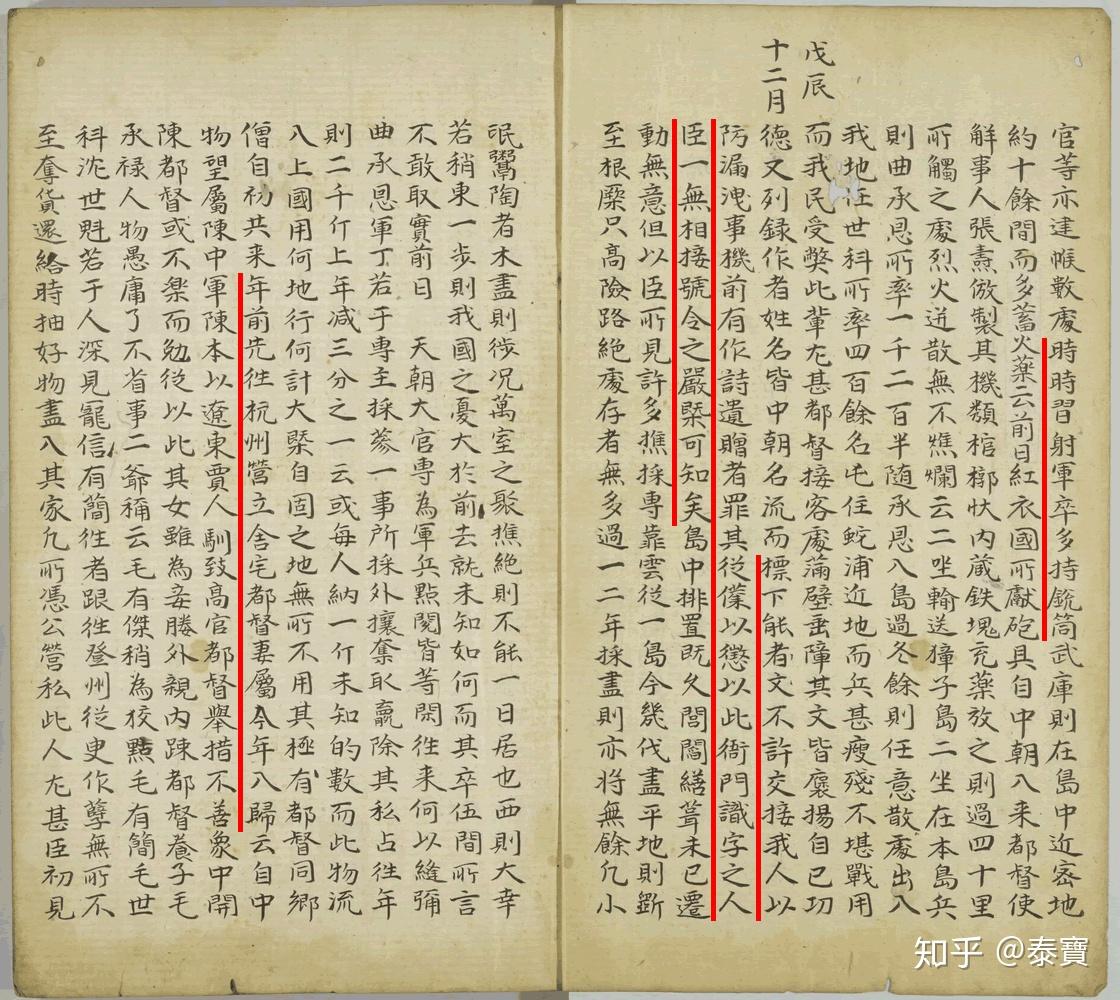 官等亦建帳數處時時習射軍卒多持銃筒武庫則在島中近密地
約十餘間而多蓄火藥云前日紅衣國所獻砲具自中朝入来都督使
解事人張燾倣製其機類棺槨状内蔵鉄塊充藥放之則過四十里
所觸之處烈火迸散無不燋爛云二坐輸送獐子島二坐在本島兵
則曲承恩所率一千二百半随承恩入島過冬餘則任意散處出入
我地任世科所率四百餘名屯住蛇浦近地而兵甚瘦殘不堪戰用
戊辰
而我民受獘此輩尤甚都督接客處蒲壁垂障其文皆褒揚自已功
十二月
德又列録作者姓名皆中朝名流而標下能者文不許交接我人以
防漏洩事機前有作詩遺贈者罪其從僕以懲以此衙門識字之人
臣一無相接號令之嚴槩可知矣島中排置既久閭閻繕葺未已遷
動無意但以臣所見許多樵採專靠雲從一島今幾伐盡平地則斲
至根糜只高險路絶處存者無多過一二年採盡則亦将無餘凡小
氓鬻陶者木盡則徙况萬室之聚樵絶則不能一日居也西則大幸
若稍東一步則我國之憂大於前去就未知如何而其卒伍間所言
不敢取實前日 天朝大官専為軍兵點閱皆等閑徃来何以縫彌
曲承恩軍丁若于專主採蔘一事所採外攘奪取贏除其私占徃年
則二千斤上年减三分之一云或每人納一斤未知的數而此物流
入上國用何地行何計大槩自固之地無所不用其極有都督同鄉
僧自初共来年前先徃杭州營立舍宅都督妻屬今年入歸云自中
物望屬陳中軍陳本以遼東賈人 馴致髙官都督舉措不善象中開
陳都督或不樂而勉從以此其女雖為妾媵外親内踈都督養子毛
承禄人物愚庸了不省事二爺稱云毛有傑稍為狡黠毛有簡毛世
科沈世魁若于人深見寵信有簡徃者跟徃登州從吏作孽無所不
至奪貨還絡時抽好物盡入其家凢所憑公營私此人尤甚臣初見
知乎 @泰寶